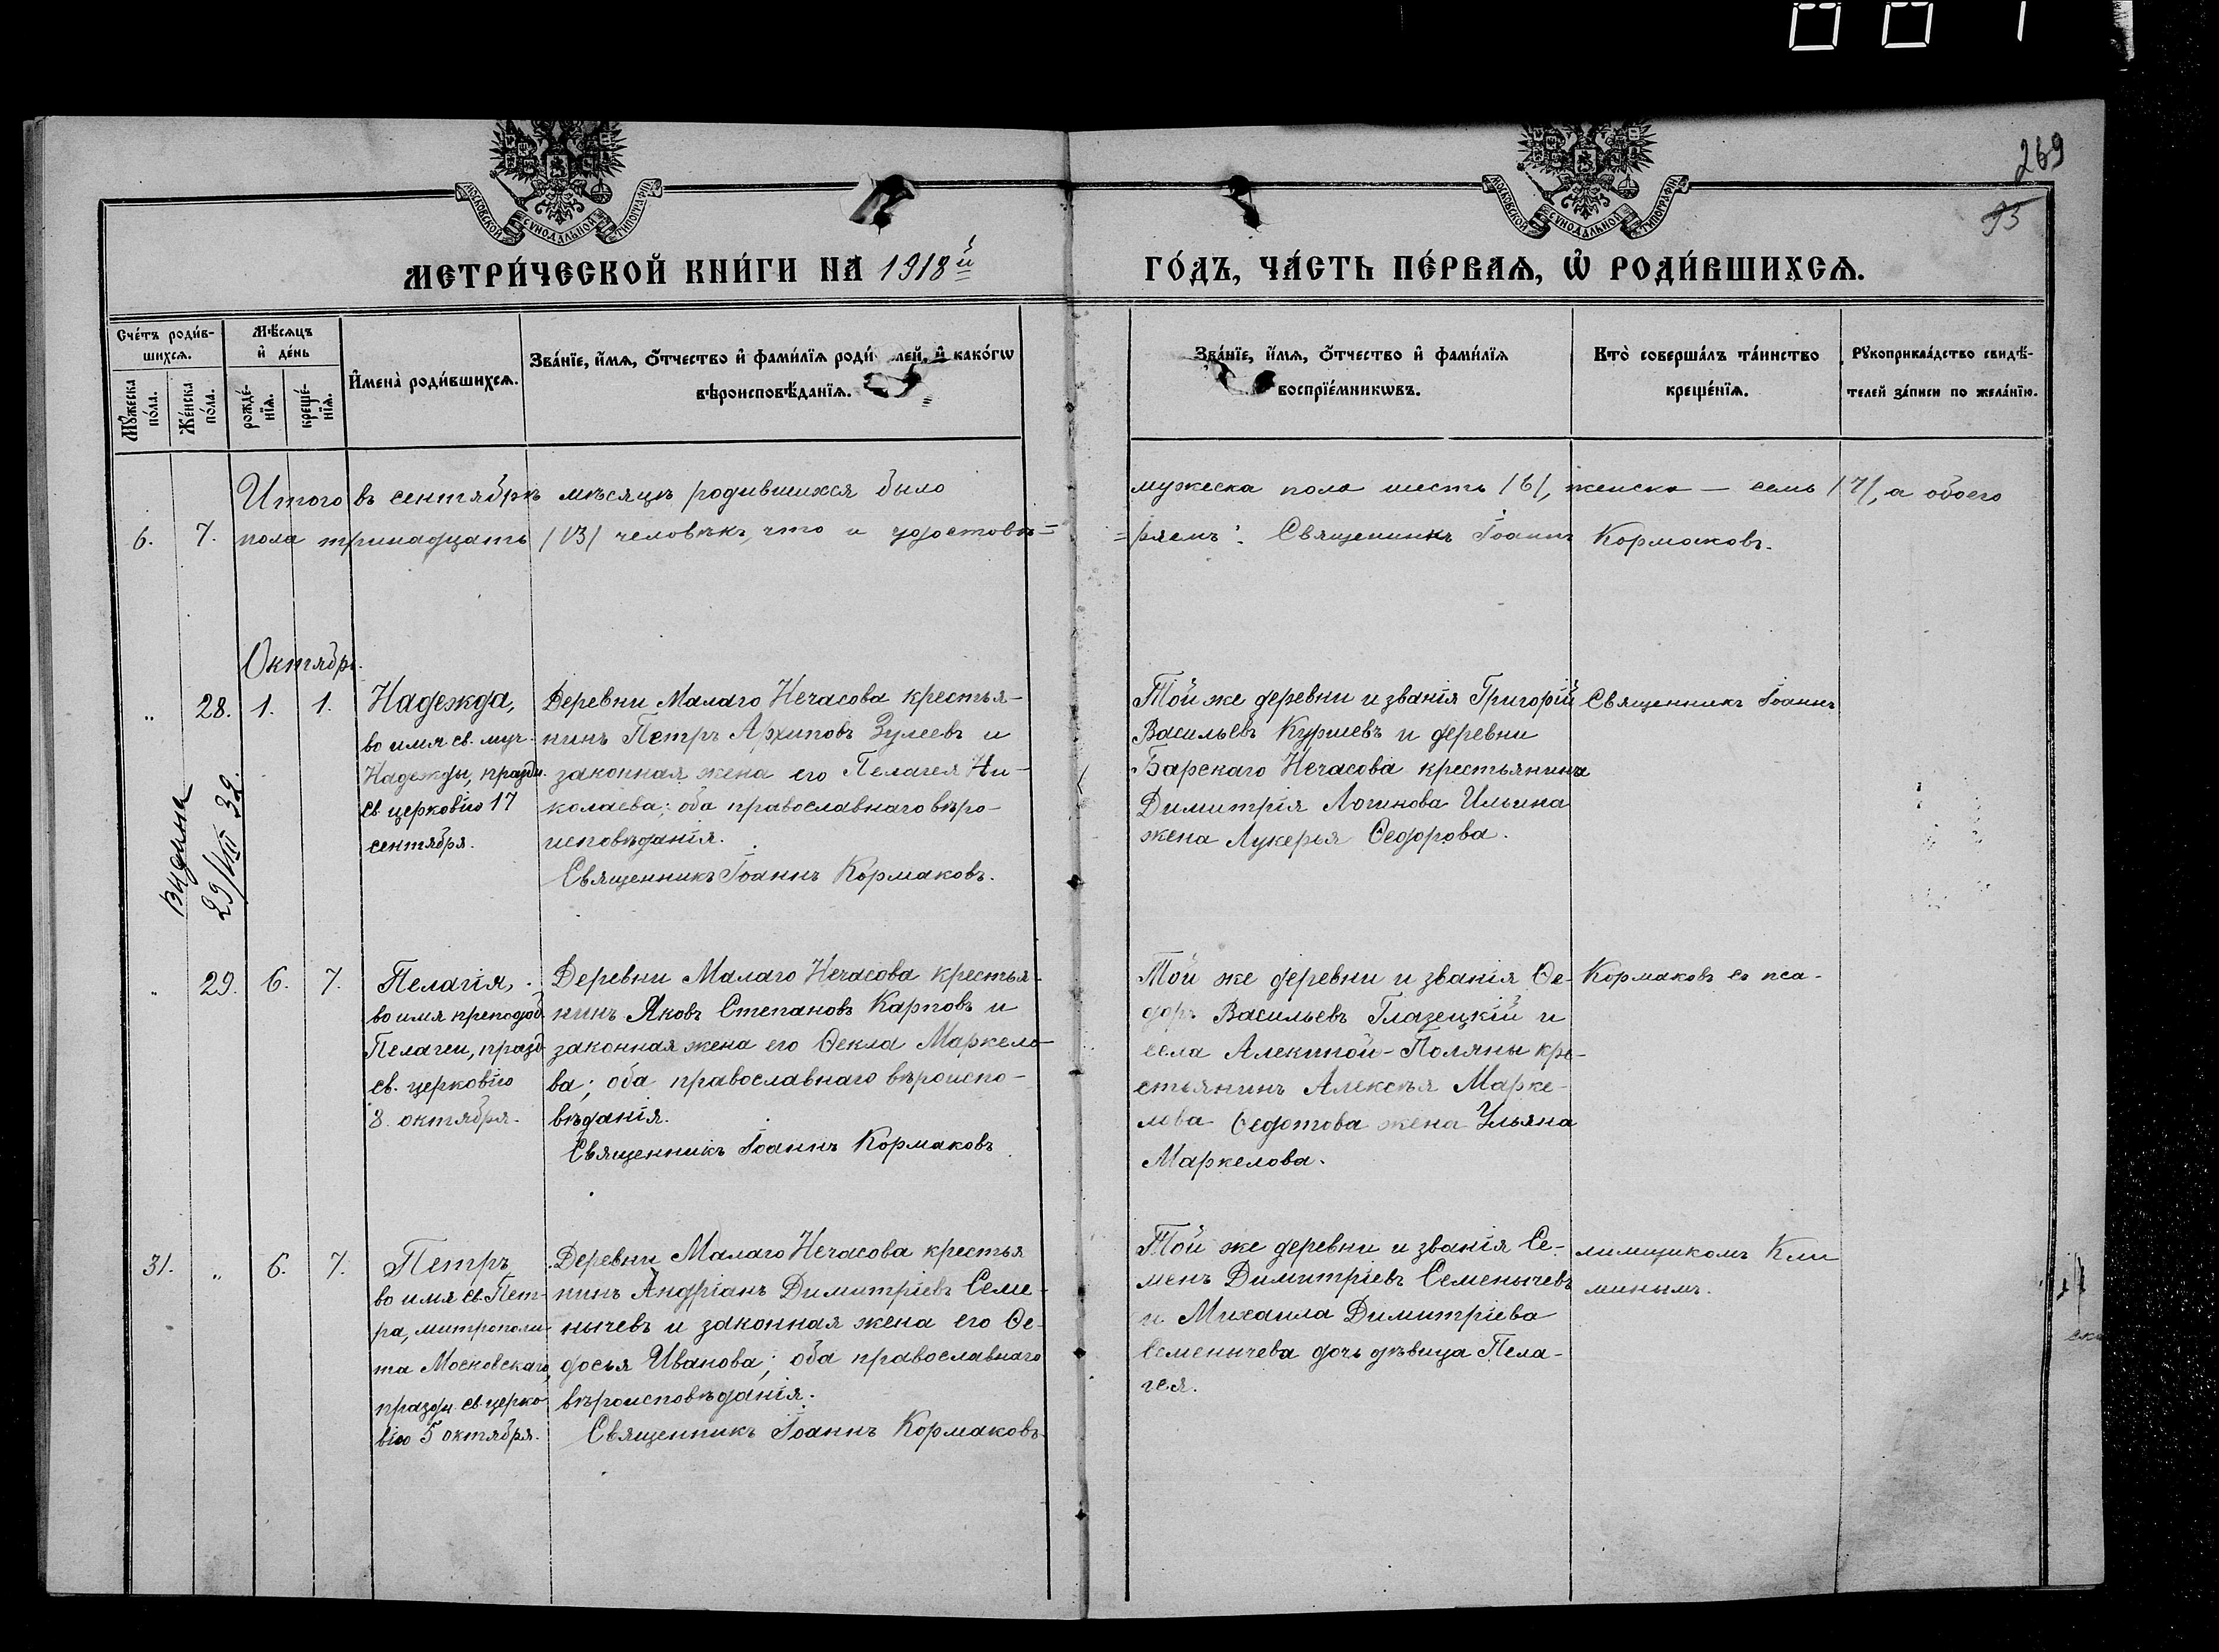 269
93
МОСКОВСКОЙ СѴНОДАЛЬНОЙ ТИПОГРАФІИ
МОСКОВСКОЙ СѴНОДАЛЬНОЙ ТИПОГРАФІИ
МЕТРИ́ЧЕСКОЙ КНИ́ГИ НА 1918й
ГО́ДЪ, ЧА́СТЬ ПЕ́РВАѦ, Ѡ҆ РОДИ́ВШИХСѦ.
Сче́тъ роди́в-
шихсѧ.
Мꙋ́жеска по́ла.
Же́нска по́ла.
Мѣ́сѧцъ
и҆ де́нь
рожде́-
нїѧ.
креще́-
нїѧ.
И҆мена̀ роди́вшихсѧ.
Зва́нїе, и҆́мѧ, ѻ҆́тчество и҆ фами́лїѧ роди́ лей, и҆ како́гѡ
вѣроисповѣ́данїѧ.
Зва́нїе, и҆́мѧ, ѻ҆́тчество и҆ фами́лїѧ
воспрїе́мникѡвъ.
Кто̀ соверша́лъ та́инство
креще́нїѧ.
Рꙋкоприкла́дство свидѣ́-
телей за́писи по жела́нїю.
Итого въ сентябрѣ мѣсяцѣ родившихся было
6. 7. пола тринадцать /13/ человѣкъ, что и удостовѣ=
мужеска пола шесть /6/, женска — семь /7/, а обоего
=ряемъ: Священникъ Іоаннъ Кормаковъ.
Октябрь.
" 28. 1. 1.
Надежда,
во имя св. муч.
Надежды, праздн.
св. церковію 17
сентября.
Деревни Малаго Нечасова крестья-
нинъ Петръ Архиповъ Зулеевъ и
законная жена его Пелагея Ни-
колаева; оба православнаго вѣро-
исповѣданія.
Священникъ Іоаннъ Кормаковъ.
Той же деревни и званія Григорій
Васильевъ Куршевъ и деревни
Барскаго Нечасова крестьянина
Димитрія Логинова Ильина
жена Лукерья Ѳедорова.
Священникъ Іоаннъ
29/VII 32.
" 29. 6. 7.
Пелагія,
во имя преподоб.
Пелагеи, празд.
св. церковію
8 октября.
Деревни Малаго Нечасова крестья-
нинъ Яковъ Степановъ Карповъ и
законная жена его Ѳекла Маркело-
ва; оба православнаго вѣроиспо-
вѣданія.
Священникъ Іоаннъ Кормаковъ
Той же деревни и званія Ѳе-
доръ Васильевъ Глазецкій и
села Алекиной-Поляны кре-
стьянинъ Алексѣя Марке-
лова Ѳедотова жена Ульяна
Маркелова.
Кормаковъ съ пса-
31. " 6. 7.
Петръ
во имя св. Пет-
ра, митрополи-
та Московскаго,
праздн. св. церко
вію 5 октября.
Деревни Малаго Нечасова крестья
нинъ Андріанъ Димитріевъ Семе-
нычевъ и законная жена его Ѳе-
досья Иванова; оба православнаго
вѣроисповѣданія.
Священникъ Іоаннъ Кормаковъ.
Той же деревни и званія Се-
менъ Димитріевъ Семенычевъ
и Михаила Димитріева
Семенычева дочь дѣвица Пела-
гея.
ломщикомъ Кли
минымъ.